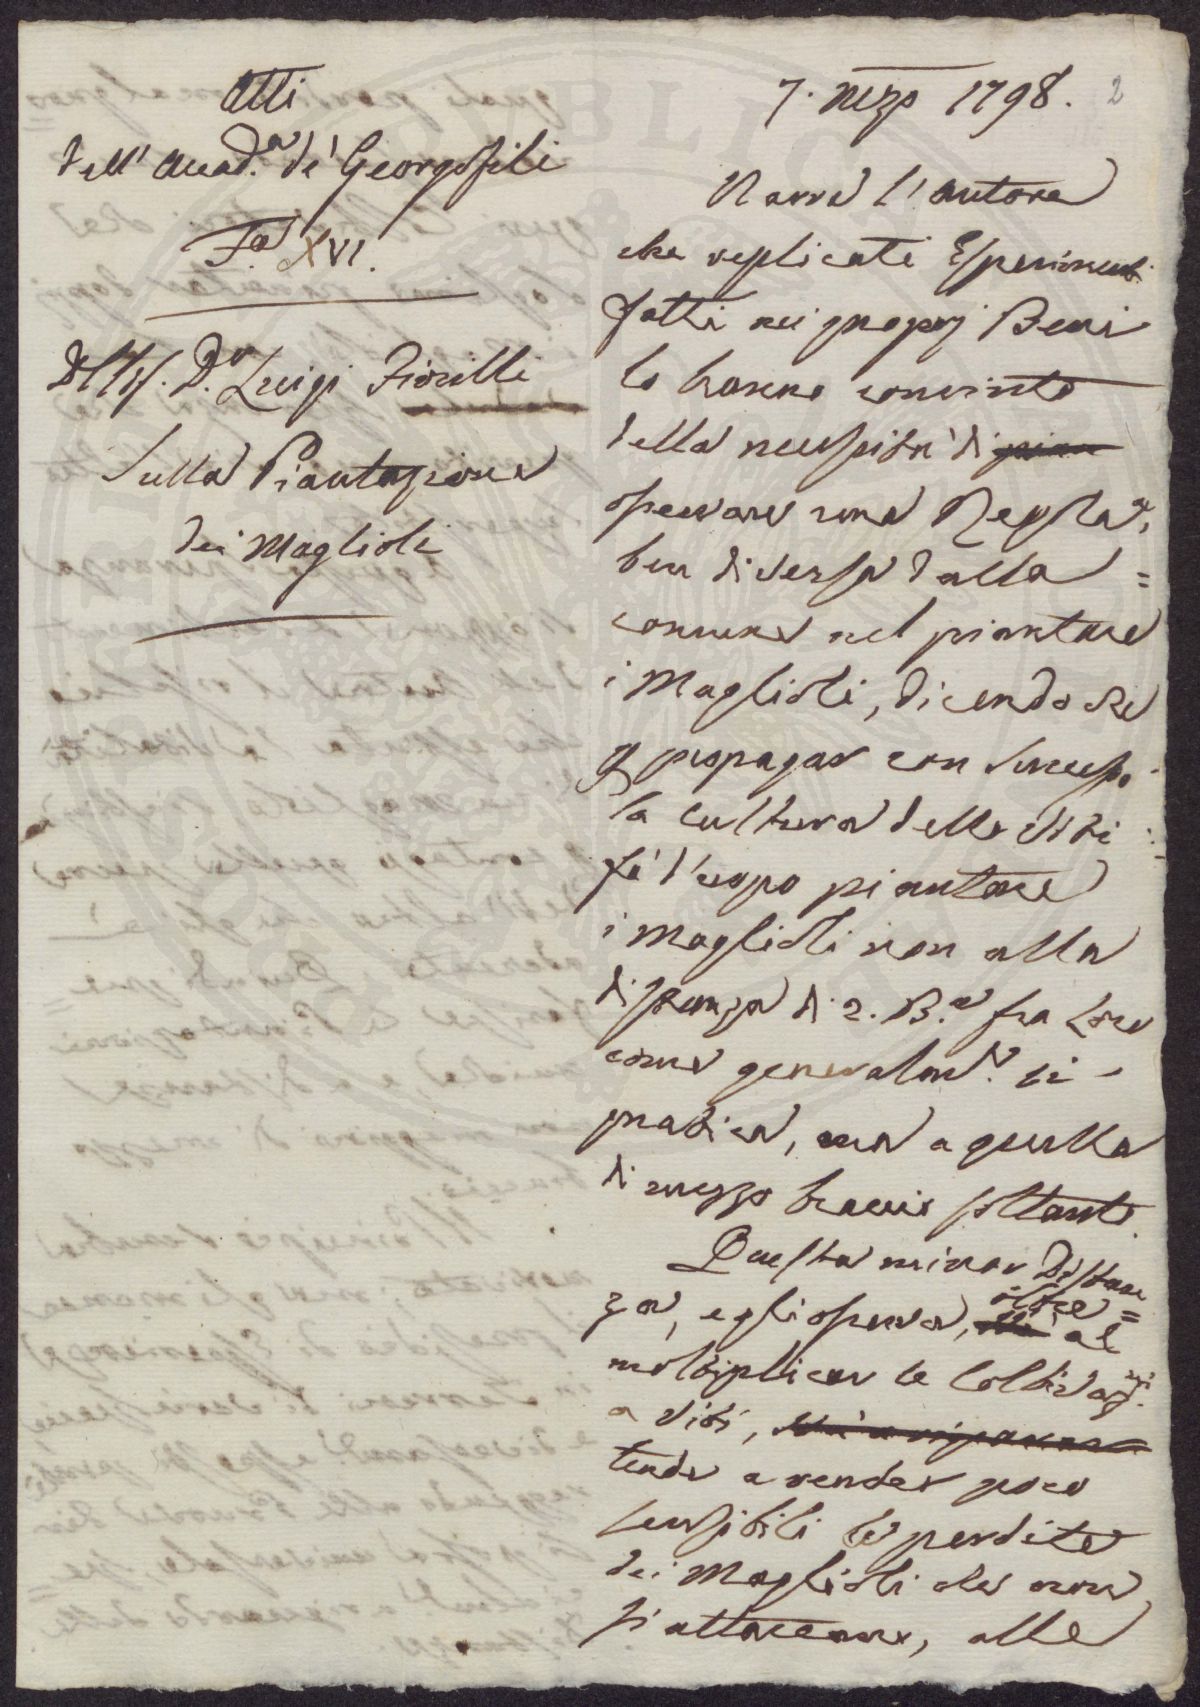 Atti
dell' Accad.a de' Georgofili
Fa XVI.
Del Sig. D.r Luigi Fiorilli
Sulla Piantazione
dei Maglioli
7. Marzo 1798. 2
Narra l'autore
che replicati Esperimenti
fatti nei proprj Beni
lo hanno convinto
della necessità di
osservare una Regola,
ben diversa dalla =
comune nel piantare
i Maglioli, dicendo che
p propagar con successo
la cultura delle Viti
fa d'uopo piantare
i maglioli non alla
distanza di 2. B.a fra loro
come generalm.e si
pratica, ma a quella
di mezzo braccio soltanto.
Questa minor Distan=
za, egli osserva, oltre al
moltiplicar le Coltivazni.
a viti,
tende a render poco
sensibili le perdite
dei Maglioli che non
s'attaccano, alle